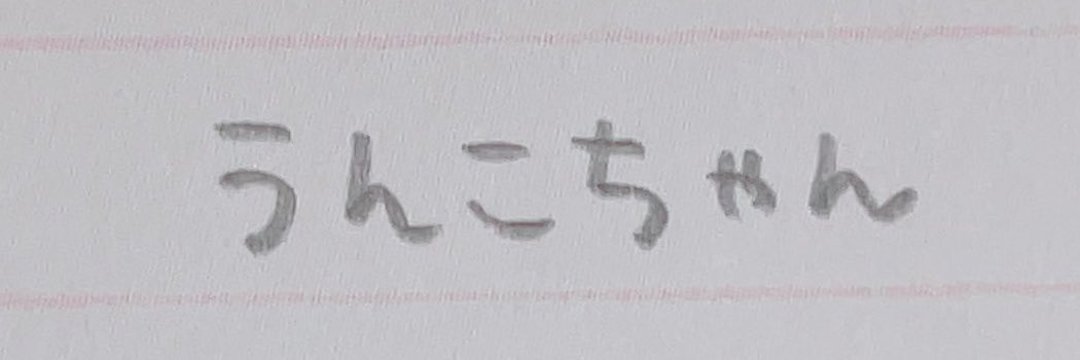 うんこちゃん